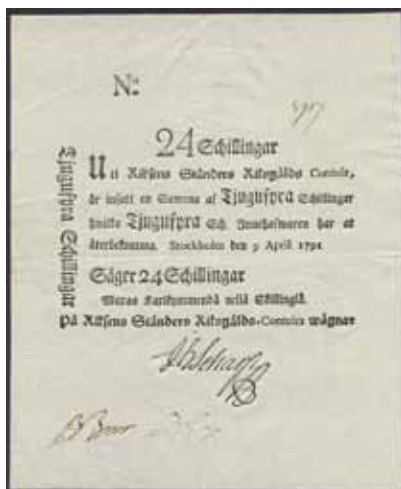 N:
24 Schillingar
Uti Riksens Ständers Riksgälds Contoir,
är insatt en Summa af Tjugufyra Schillingar
hwilka Tjugufyra Sch. Innehafwaren har at
återbekomma. Stockholm den 9 April 1791
Säger 24 Schillingar
På Riksens Ständers Riksgälds-Contoirs wägnar
Tjugufyra Schillingar